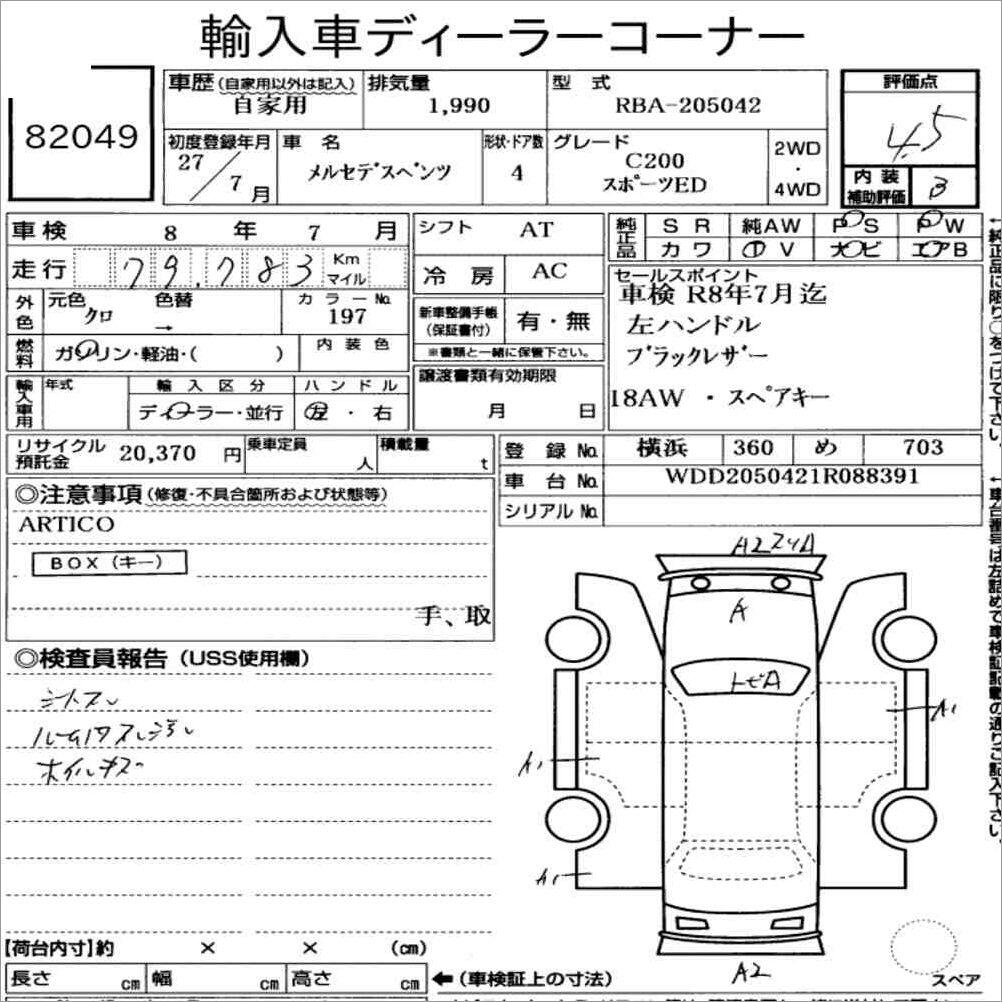 輸入車ディーラーコーナー
82049
車歴(自家用以外は記入) 排気量 型 式 評価点
自家用 1,990 RBA-205042 4.5
初度登録年月 車 名 形状・ドア数 グレード 2WD
27/7月 メルセデスベンツ 4 C200 ・
スポーツED 4WD
内装補助評価 B
車検 8 年 7 月 シフト AT 純正品 SR 純AW PS PW
カワ TV ナビ エアB
走行 79,783 Km マイル 冷 房 AC
セールスポイント
車検 R8年7月迄
左ハンドル
ブラックレザー
18AW ・スペアキー
外色 元色 色替 カラーNo.
クロ → 197
新車整備手帳(保証書付) 有・無
※書類と一緒に保管下さい。
燃料 ガソリン・軽油・( ) 内装色
輸入車用 年式 輸入区分 ハンドル
ディーラー・並行 左・右
譲渡書類有効期限
月 日
リサイクル預託金 20,370 円 乗車定員 人 積載量 t
登 録 No. 横浜 360 め 703
車 台 No. WDD2050421R088391
シリアル No.
◎注意事項(修復・不具合箇所および状態等)
ARTICO
BOX(キー)
手、取
◎検査員報告(USS使用欄)
シートスレ
ルーム内スレ汚レ
ホイルキズ
A2 A
A
トビA
A1
A1
A1
A2
【荷台内寸】約 × × (cm)
長さ cm 幅 cm 高さ cm ←(車検証上の寸法)
スペア
←純正品に限り○をつけて下さい。
←車台番号は左詰めで車検証記載の通りご記入下さい。